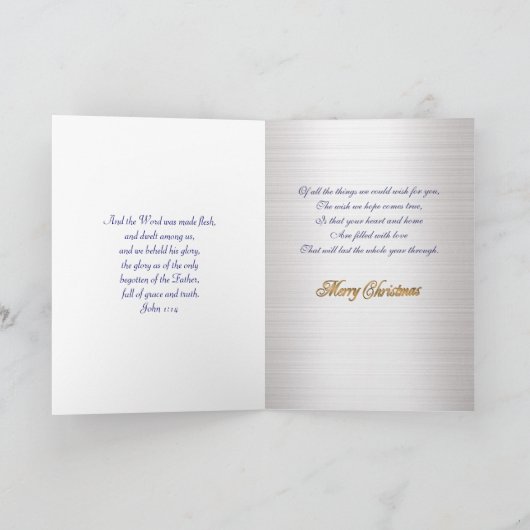 And the Word was made flesh,
and dwelt among us,
and we beheld his glory,
the glory as of the only
begotten of the Father,
full of grace and truth.
John 1:14
Of all the things we could wish for you,
The wish we hope comes true,
Is that your heart and home
Are filled with love
That will last the whole year through.
Merry Christmas